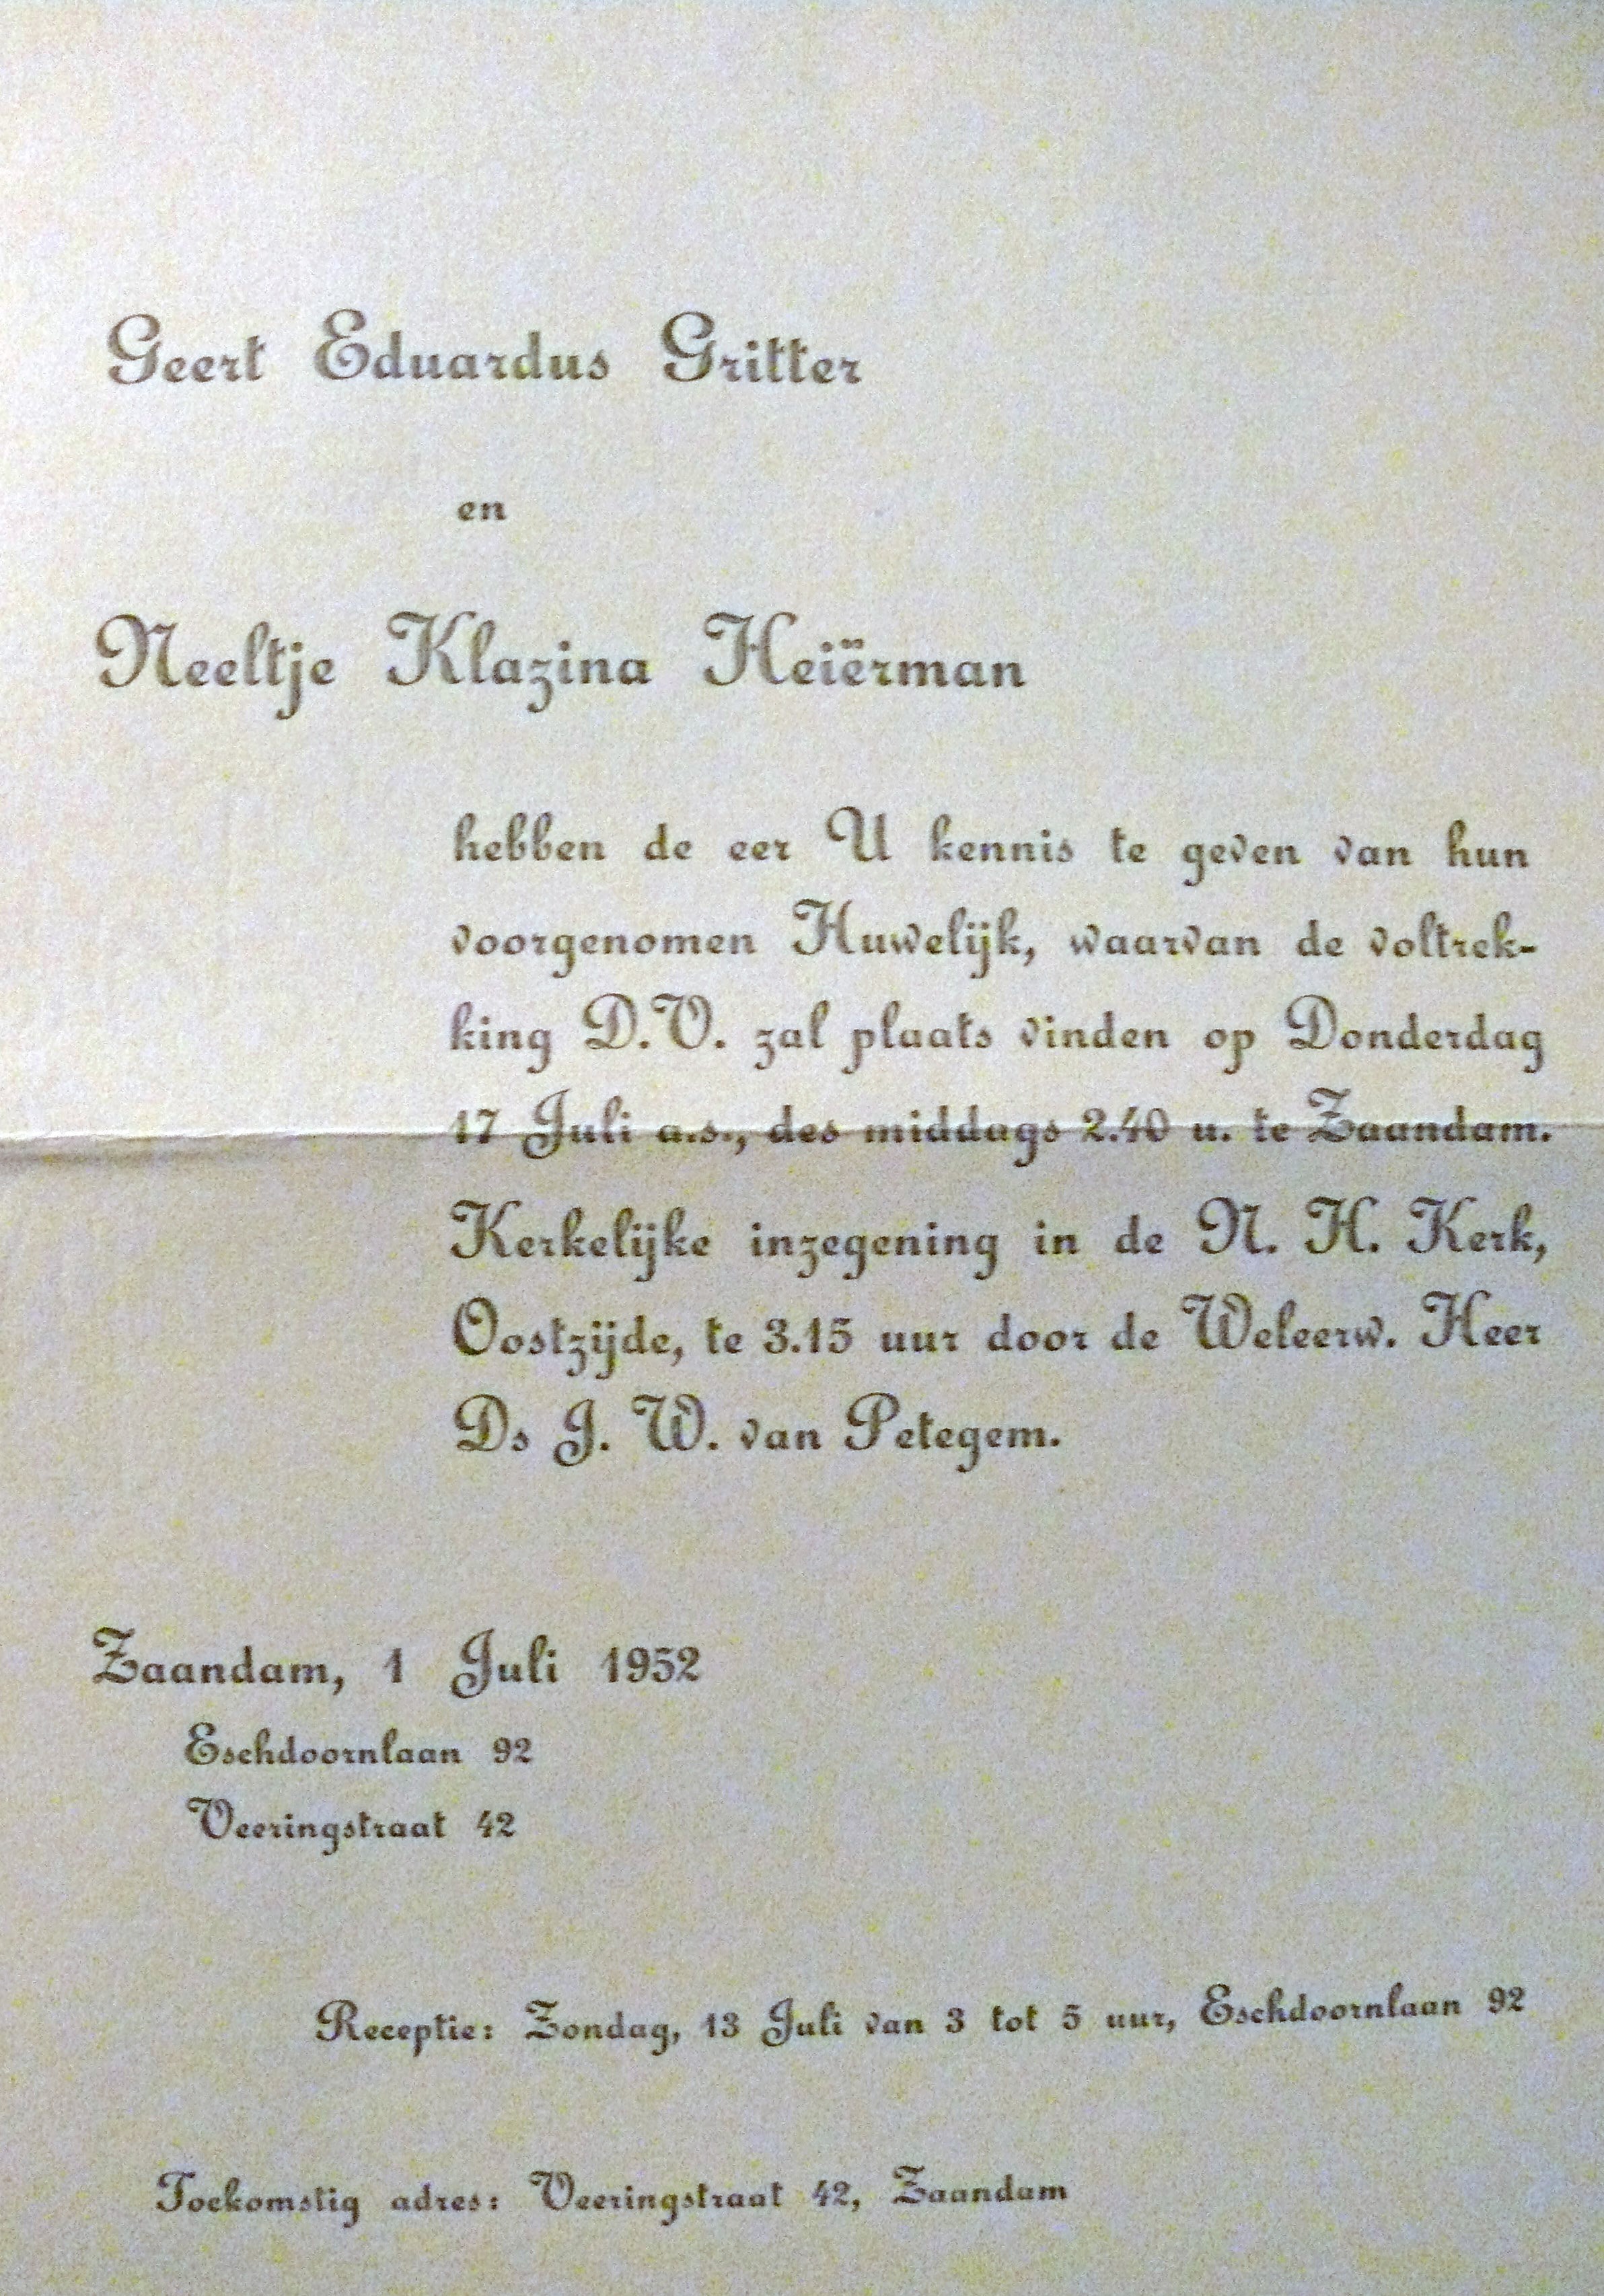 Geert Eduardus Gritter
en
Neeltje Klazina Heiërman
hebben de eer U kennis te geven van hun
voorgenomen Huwelijk, waarvan de voltrek-
king D.V. zal plaats vinden op Donderdag
17 Juli a.s., des middags 2.40 u. te Zaandam.
Kerkelijke inzegening in de N. H. Kerk,
Oostzijde, te 3.15 uur door de Weleerw. Heer
Ds J. W. van Petegem.
Zaandam, 1 Juli 1952
Eschdoornlaan 92
Veeringstraat 42
Receptie: Zondag, 13 Juli van 3 tot 5 uur, Eschdoornlaan 92
Toekomstig adres: Veeringstraat 42, Zaandam